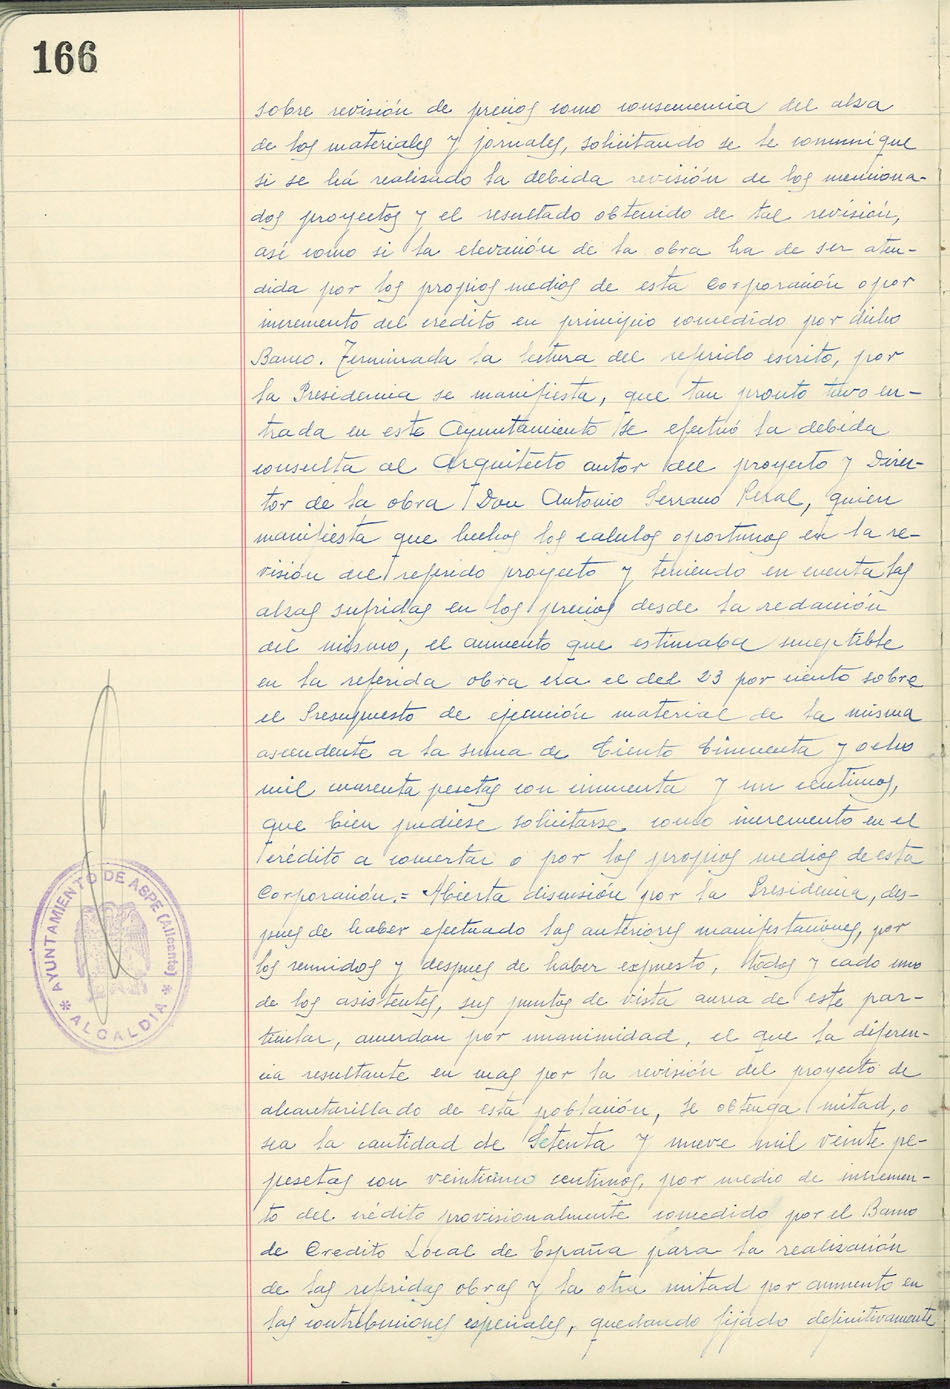 166
sobre revisión de precios como consecuencia del alza
de los materiales y jornales, solicitando se le comunique
si se há realizado la debida revisión de los menciona-
dos proyectos y el resultado obtenido de tal revisión,
así como si la elevación de la obra ha de ser aten-
dida por los propios medios de esta Corporación o por
incremento del crédito en principio concedido por dicho
Banco. Terminada la lectura del referido escrito, por
la Presidencia se manifiesta, que tan pronto tuvo en-
trada en este Ayuntamiento se efectuó la debida
consulta al Arquitecto autor del proyecto y Direc-
tor de la obra Don Antonio Serrano Peral, quien
manifiesta que hechos los calculos oportunos en la re-
visión del referido proyecto y teniendo en cuenta las
alzas sufridas en los precios desde la redacción
del mismo, el aumento que estimaba suceptible
en la referida obra era el del 23 por ciento sobre
el Presupuesto de ejecución material de la misma
ascendente a la suma de Ciento Cincuenta y ocho
mil cuarenta pesetas con cincuenta y un centimos,
que bien pudiese solicitarse como incremento en el
crédito a concertar o por los propios medios de esta
Corporación.= Abierta discusión por la Presidencia, des-
pues de haber efectuado las anteriores manifestaciones, por
los reunidos y despues de haber expuesto, todos y cado uno
de los asistentes, sus puntos de vista acerca de este par-
ticular, acuerdan por unanimidad, el que la diferen-
cia resultante en mas por la revisión del proyecto de
alcantarillado de esta población, se obtenga mitad, o
sea la cantidad de Setenta y nueve mil veinte pe-
pesetas con veinticinco centimos, por medio de incremen-
to del crédito provisionalmente concedido por el Banco
de Credito Local de España para la realización
de las referidas obras y la otra mitad por aumento en
las contribuciones especiales, quedando fijado definitivamente
* AYUNTAMIENTO DE ASPE (Alicante) *
ALCALDIA